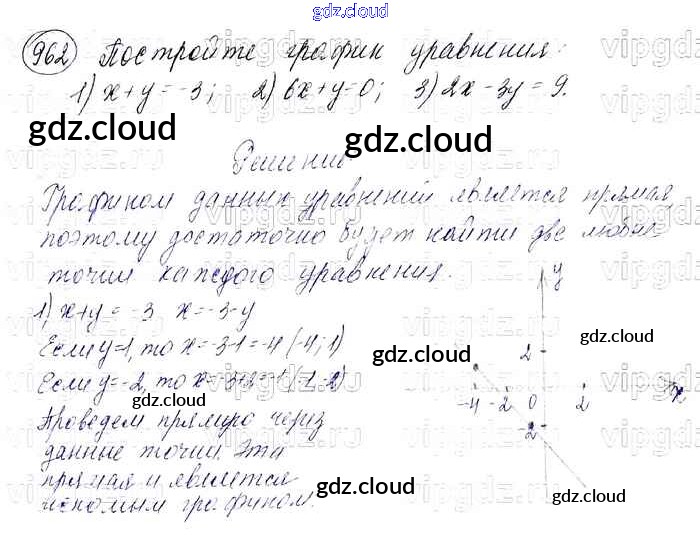 gdz.cloud
962 Постройте график уравнения:
1) x+y=-3; 2) 6x+y=0; 3) 2x-3y=9.
gdz.cloud gdz.cloud
Решение
Графиком данных уравнений является прямая
поэтому достаточно будет найти две любые
точки каждого уравнения.
1) x+y=-3 x=-3-y
Если y=1, то x=-3-1=-4 (-4;1)
Если y=-2, то x=-3+2=-1 (-1;-2)
Проведем прямую через
данные точки. Эта
прямая и является
искомым графиком.
y
2
-4 -2 0 2 x
-2
gdz.cloud
gdz.cloud
gdz.cloud
gdz.cloud
gdz.cloud
gdz.cloud